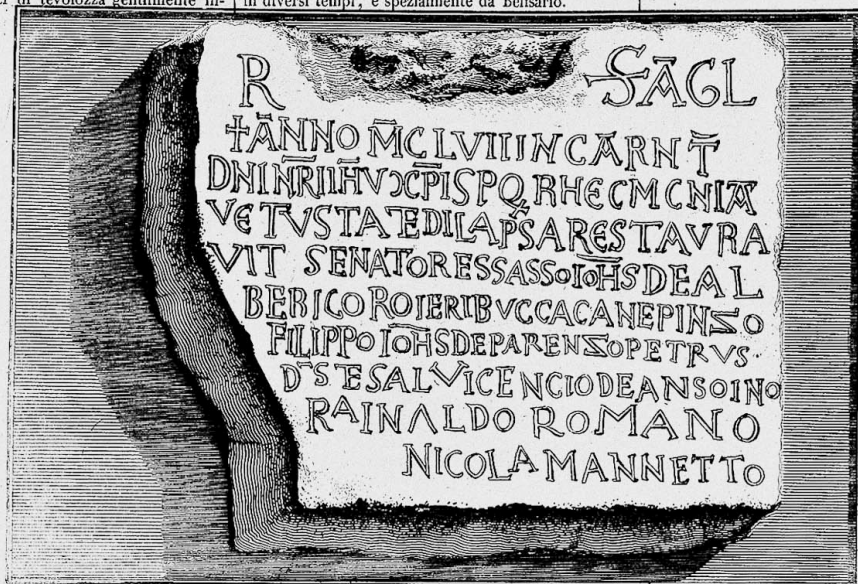 di tevolozza gentilmente in- in diversi tempi, e spezialmente da Belisario.
R SĀGL
†ĀNNO M̄CLVIIIINCĀRNT̄
DNINR̄IIH̄VXC̄PISPQRHECMCNIĀ
VETUSTATEDILAP̄SARESTAVRA
VIT SENATORESSASSOIOH̄SDEAL
BERICOROIERIBVCCACANEPINZO
FILIPPOIOH̄SDEPARENZOPETRVS·
DSTESALVICENCIODEANSOINO
RAINALDO ROMANO
NICOLAMANNETTO